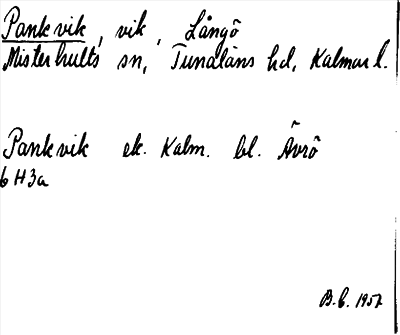 Pankvik, vik, Långö
Misterhults sn, Tunaläns hd, Kalmar l.
Pankvik ek. Kalm. bl. Ävrö
6H3a
B.C. 1957